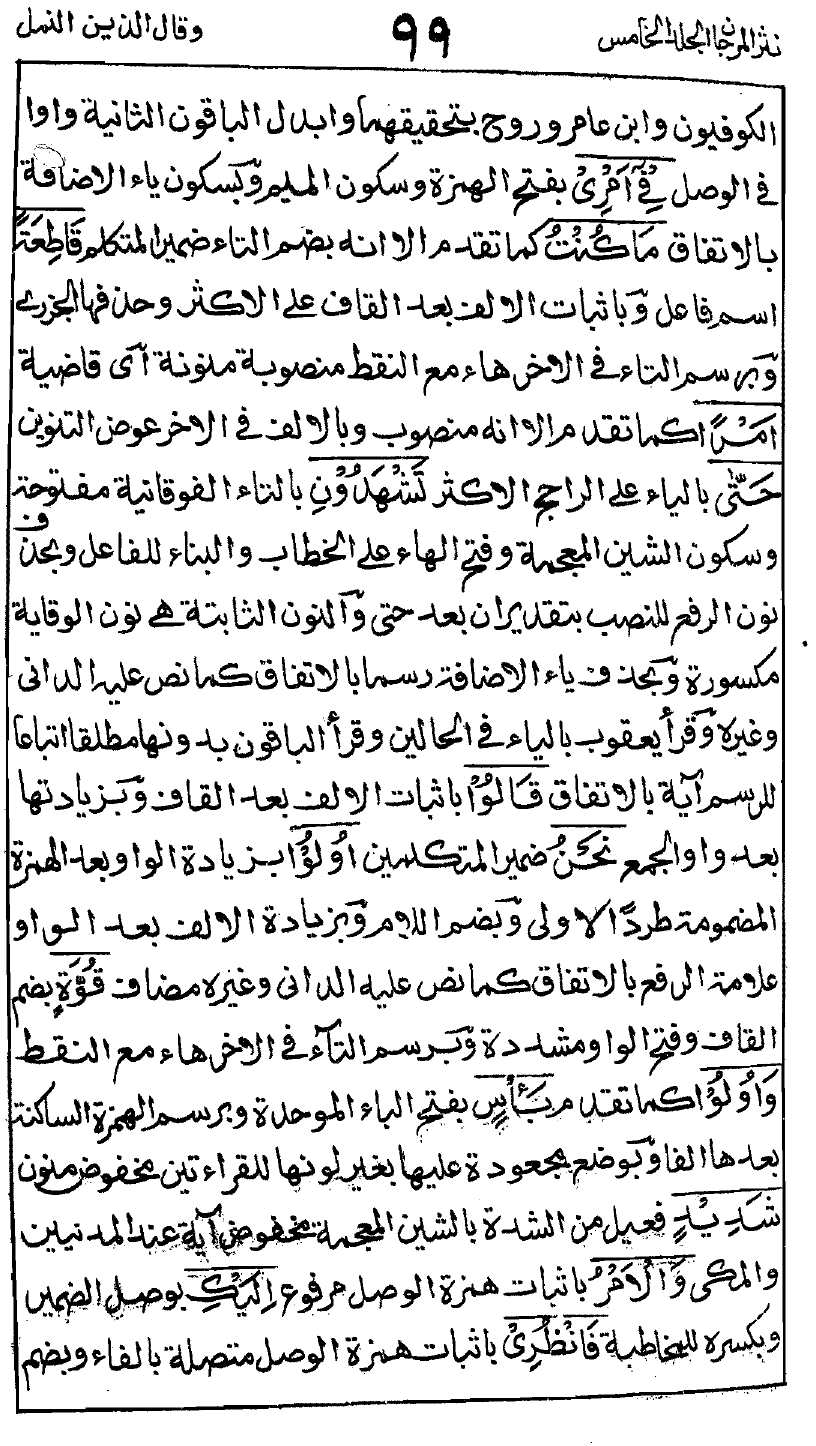 نثر المرجان الجلد الخامس ٩٩ وقال الذين النمل
الكوفيون وابن عامر وروح بتحقيقهما وابدل الباقون الثانية واوا
فى الوصل فِىْٓ اَمْرِىْ بفتح الهمزة وسكون الميم وَبسكون ياء الاضافة
بالاتفاق مَا كُنْتُ كما تقدم الا انه بضم التاء ضمير المتكلم قَاطِعَةً
اسم فاعل وَباثبات الالف بعد القاف على الاكثر وحذفها الجزرى
وَبرسم التاء فى الاخر هاء مع النقط منصوبة منونة آى قاضية
اَمْرًا كما تقدم الا انه منصوب وبالالف فى الاخر عوض التنوين
حَتّٰى بالياء على الراجح الاكثر تَشْهَدُوْنِ بالتاء الفوقانية مفتوحة
وسكون الشين المعجمة وفتح الهاء على الخطاب والبناء للفاعل وبحذف
نون الرفع للنصب بتقدير ان بعد حتى وَالنون الثابتة هى نون الوقاية
مكسورة وَبحذف ياء الاضافة رسما بالاتفاق كما نص عليه الدانى
وغيره وَقرأ يعقوب بالياء فى الحالين وقرأ الباقون بدونها مطلقا اتباعا
للرسم آية بالاتفاق قَالُوْا باثبات الالف بعد القاف وَبزيادتها
بعد واو الجمع نَحْنُ ضمير المتكلمين اُولُوْا بزيادة الواو بعد الهمزة
المضمومة طردًا للاولى وَبضم اللام وَبزيادة الالف بعد الواو
علامة الرفع بالاتفاق كما نص عليه الدانى وغيره مضاف قُوَّةٍ بضم
القاف وفتح الواو مشددة وَبرسم التآء فى الاخر هاء مع النقط
وَاُولُوْا كما تقدم بَأْسٍ بفتح الباء الموحدة وبرسم الهمزة الساكنة
بعدها الفا وَبوضع مجعودة عليها بغير لونها للقراءتين مخفوض منون
شَدِيْدٍ فعيل من الشدة بالشين المعجمة مخفوض آية عند المدنيين
والمكى وَالْاَمْرُ باثبات همزة الوصل مرفوع اِلَيْكِ بوصل الضمير
وبكسره للمخاطبة فَانْظُرِىْ باثبات همزة الوصل متصلة بالفاء وبضم